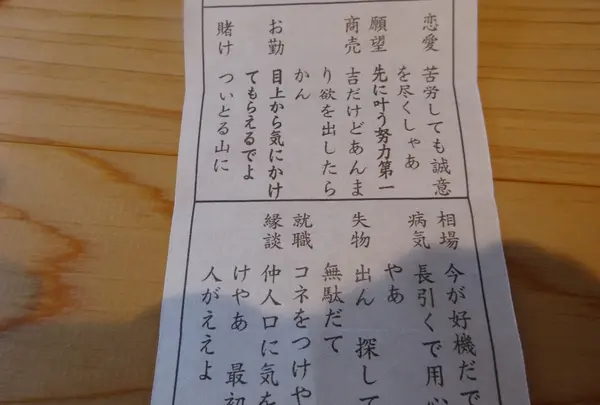 恋愛 苦労しても誠意
を尽くしゃあ
願望 先に叶う努力第一
商売 吉だけどあんま
り欲を出したら
かん
お勤 目上から気にかけ
てもらえるでよ
賭け ついとる山に
相場 今が好機だで
病気 長引くで用心
やあ
失物 出ん 探して
無駄だて
就職 コネをつけや
縁談 仲人口に気を
けやあ 最初
人がええよ